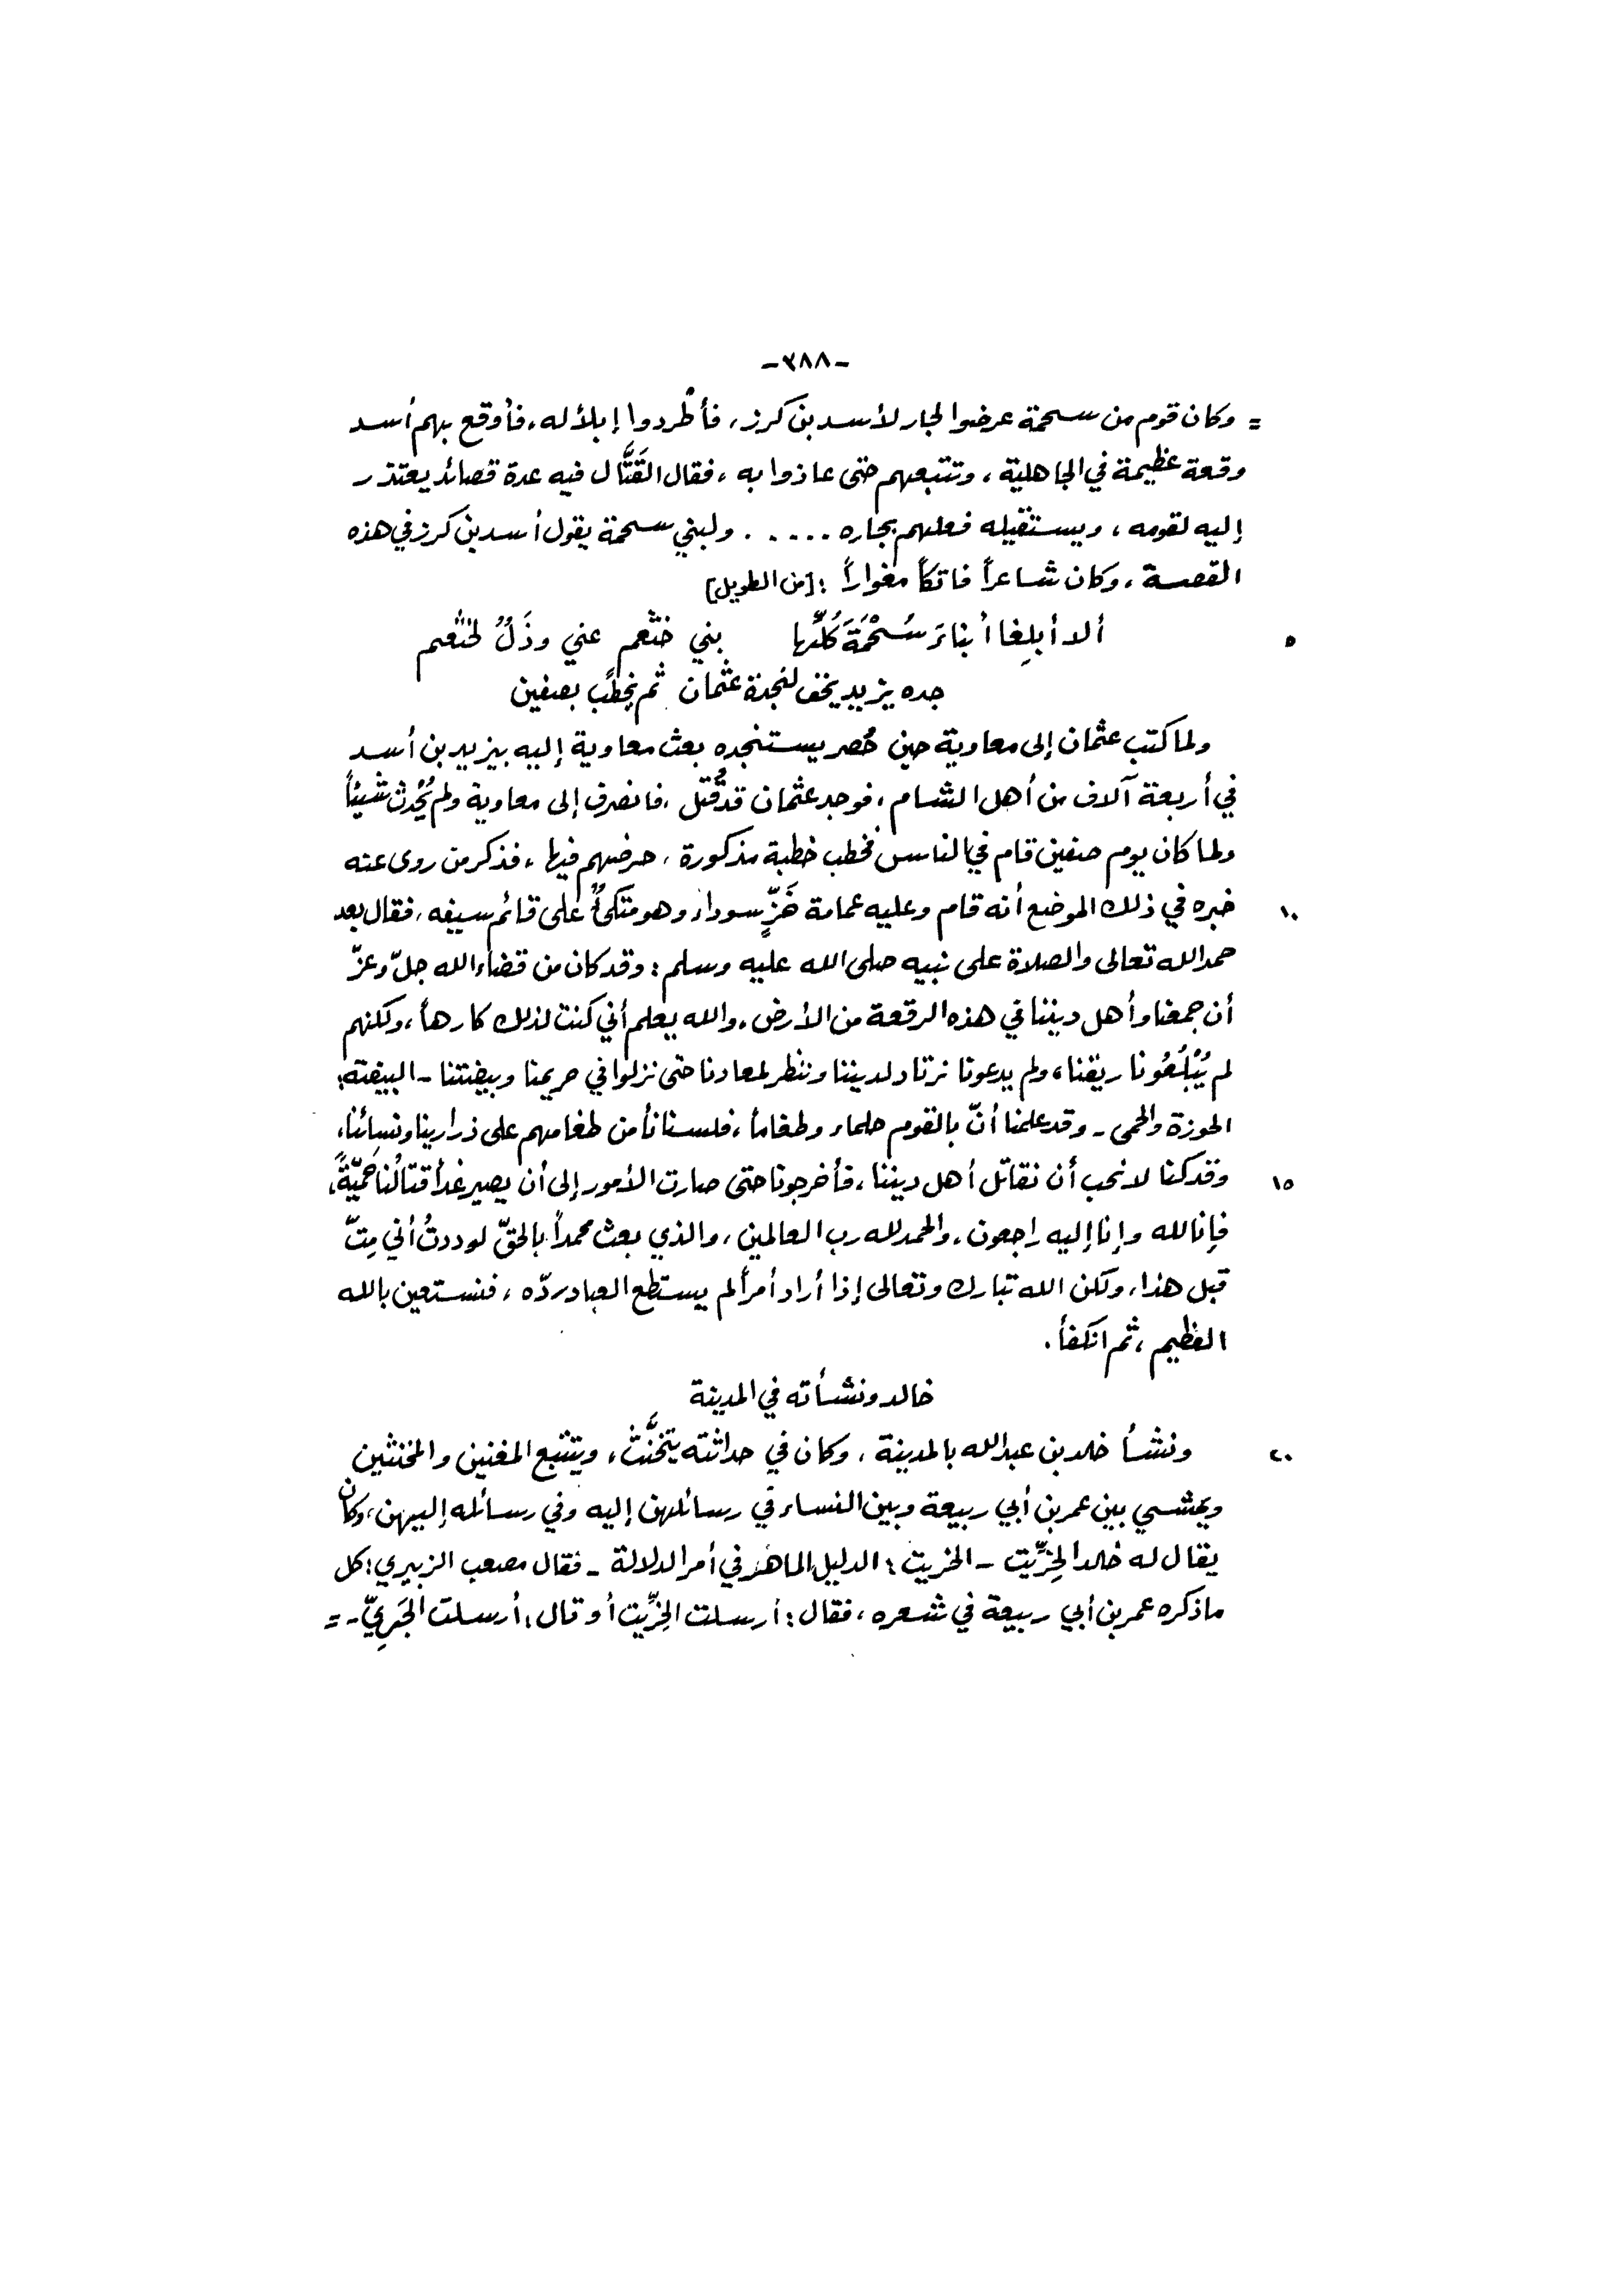 -٢٨٨-
= وكان قوم من سحمة عرضوا لجار لأسد بن كرز، فأطردوا إبلاً له، فأوقع بهم أسد
وقعة عظيمة في الجاهلية، وتتبعهم حتى عاذوا به، فقال القَتَّال فيه عدة قصائد يعتذر
إليه لقومه، ويستقيله فعلهم بجاره ..... ولبني سحمة يقول أسد بن كرز في هذه
القصة، وكان شاعراً فاتكاً مغواراً: [من الطويل]
ألا أبلِغا أبناءَ سُحْمَةَ كُلِّها بني خثعم عني وذَلٌّ لخثعم ٥
جده يزيد يخف لنجدة عثمان ثم يخطب بصفين
ولما كتب عثمان إلى معاوية حين حُصر يستنجده بعث معاوية إليه بيزيد بن أسد
في أربعة آلاف من أهل الشام، فوجد عثمان قد قُتل، فانصرف إلى معاوية ولم يُحْدث شيئاً
ولما كان يوم صفين قام في الناس فخطب خطبة مذكورة، حرضهم فيها، فذكر من روى عنه
خبره في ذلك الموضع أنه قام وعليه عمامة خَزٍّ سوداء وهو متكئٌ على قائم سيفه، فقال بعد ١٠
حمد الله تعالى والصلاة على نبيه صلى الله عليه وسلم: وقد كان من قضاء الله جلّ وعزّ
أن جمعنا وأهل ديننا في هذه الرقعة من الأرض، والله يعلم أني كنت لذلك كارهاً، ولكنهم
لم يُبْلِعُونا ريقنا، ولم يدعونا نرتاد لديننا وننظر لمعادنا حتى نزلوا في حريمنا وبيضتنا - البيضة:
الحوزة والحمى - وقد علمنا أنّ بالقوم حلماء وطغاماً، فلسنا نأمن طغامهم على ذرارينا ونسائنا،
وقد كنا لا نحب أن نقاتل أهل ديننا، فأخرجونا حتى صارت الأمور إلى أن يصير غداً قتالُنا حَمِيّةً، ١٥
فإنا لله وإنا إليه راجعون، والحمد لله رب العالمين، والذي بعث محمداً بالحقّ لوددتُ أني مِتّ
قبل هذا، ولكن الله تبارك وتعالى إذا أراد أمراً لم يستطع العباد ردّه، فنستعين بالله
العظيم، ثم انكفأ.
خالد ونشأته في المدينة
ونشأ خلد بن عبد الله بالمدينة، وكان في حداثته يتخنَّث، ويتتبع المغنين والمخنثين ٢٠
ويمشي بين عمر بن أبي ربيعة وبين النساء في رسائلهن إليه وفي رسائله إليهن، وكان
يقال له خلد الخِرِّيت - الخريت: الدليل الماهر في أمر الدلالة - فقال مصعب الزبيري: كل
ما ذكره عمر بن أبي ربيعة في شعره، فقال: أرسلت الخِرِّيت أو قال: أرسلت الجَرِيّ - =